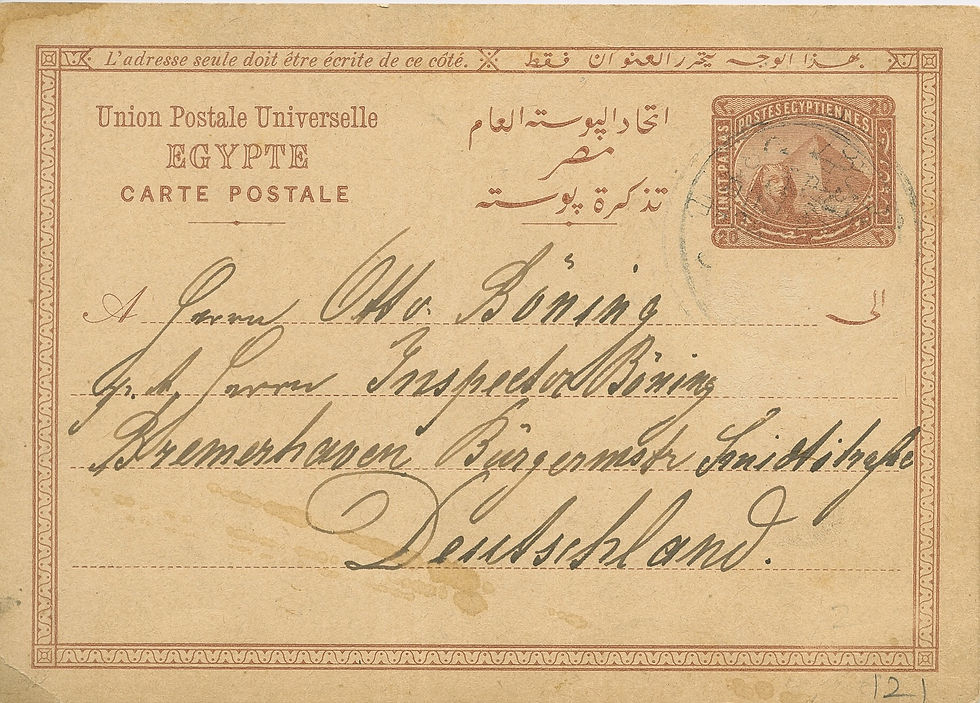 L'adresse seule doit être écrite de ce côté.
بهذا الوجه يتحرر العنوان فقط
Union Postale Universelle
EGYPTE
CARTE POSTALE
اتحاد البوسته العام
مصر
تذكرة بوسته
POSTES EGYPTIENNES
VINGT PARAS
20
20
٢٠
A Herrn Otto Böning
الى
p. A. Herrn Inspector Böning
Bremerhaven Bürgermstr Smidtstraße
Deutschland.
121